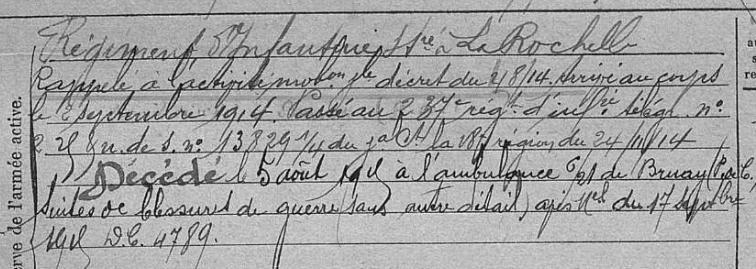 Régiment d'Infanterie, Stré à La Rochelle
Rappelé à l'activité mobon Gle décret du 2/8/14. Arrivé au corps
le 2 septembre 1914. Passé au 237e régt d'infrie télég. no
du 24/11/14
Décédé le 5 août 1915 à l'ambulance de Bruay (P. de C.
suites de blessures de guerre (sans autre détail) avis du 17 Septbre
1915 D.C. 4789.
erve de l'armée active.